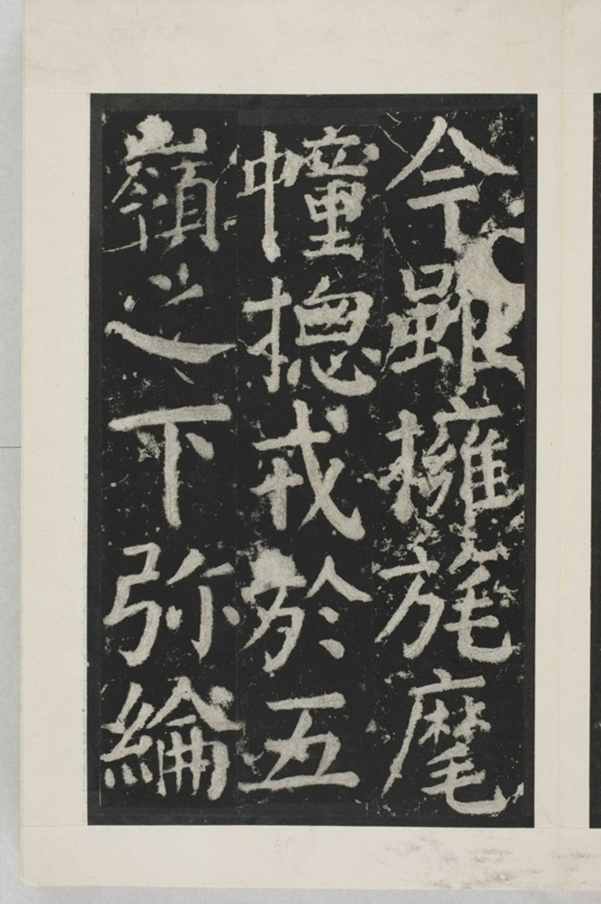 今雖擁旄麾
幢揔戎於五
嶺之下弥綸